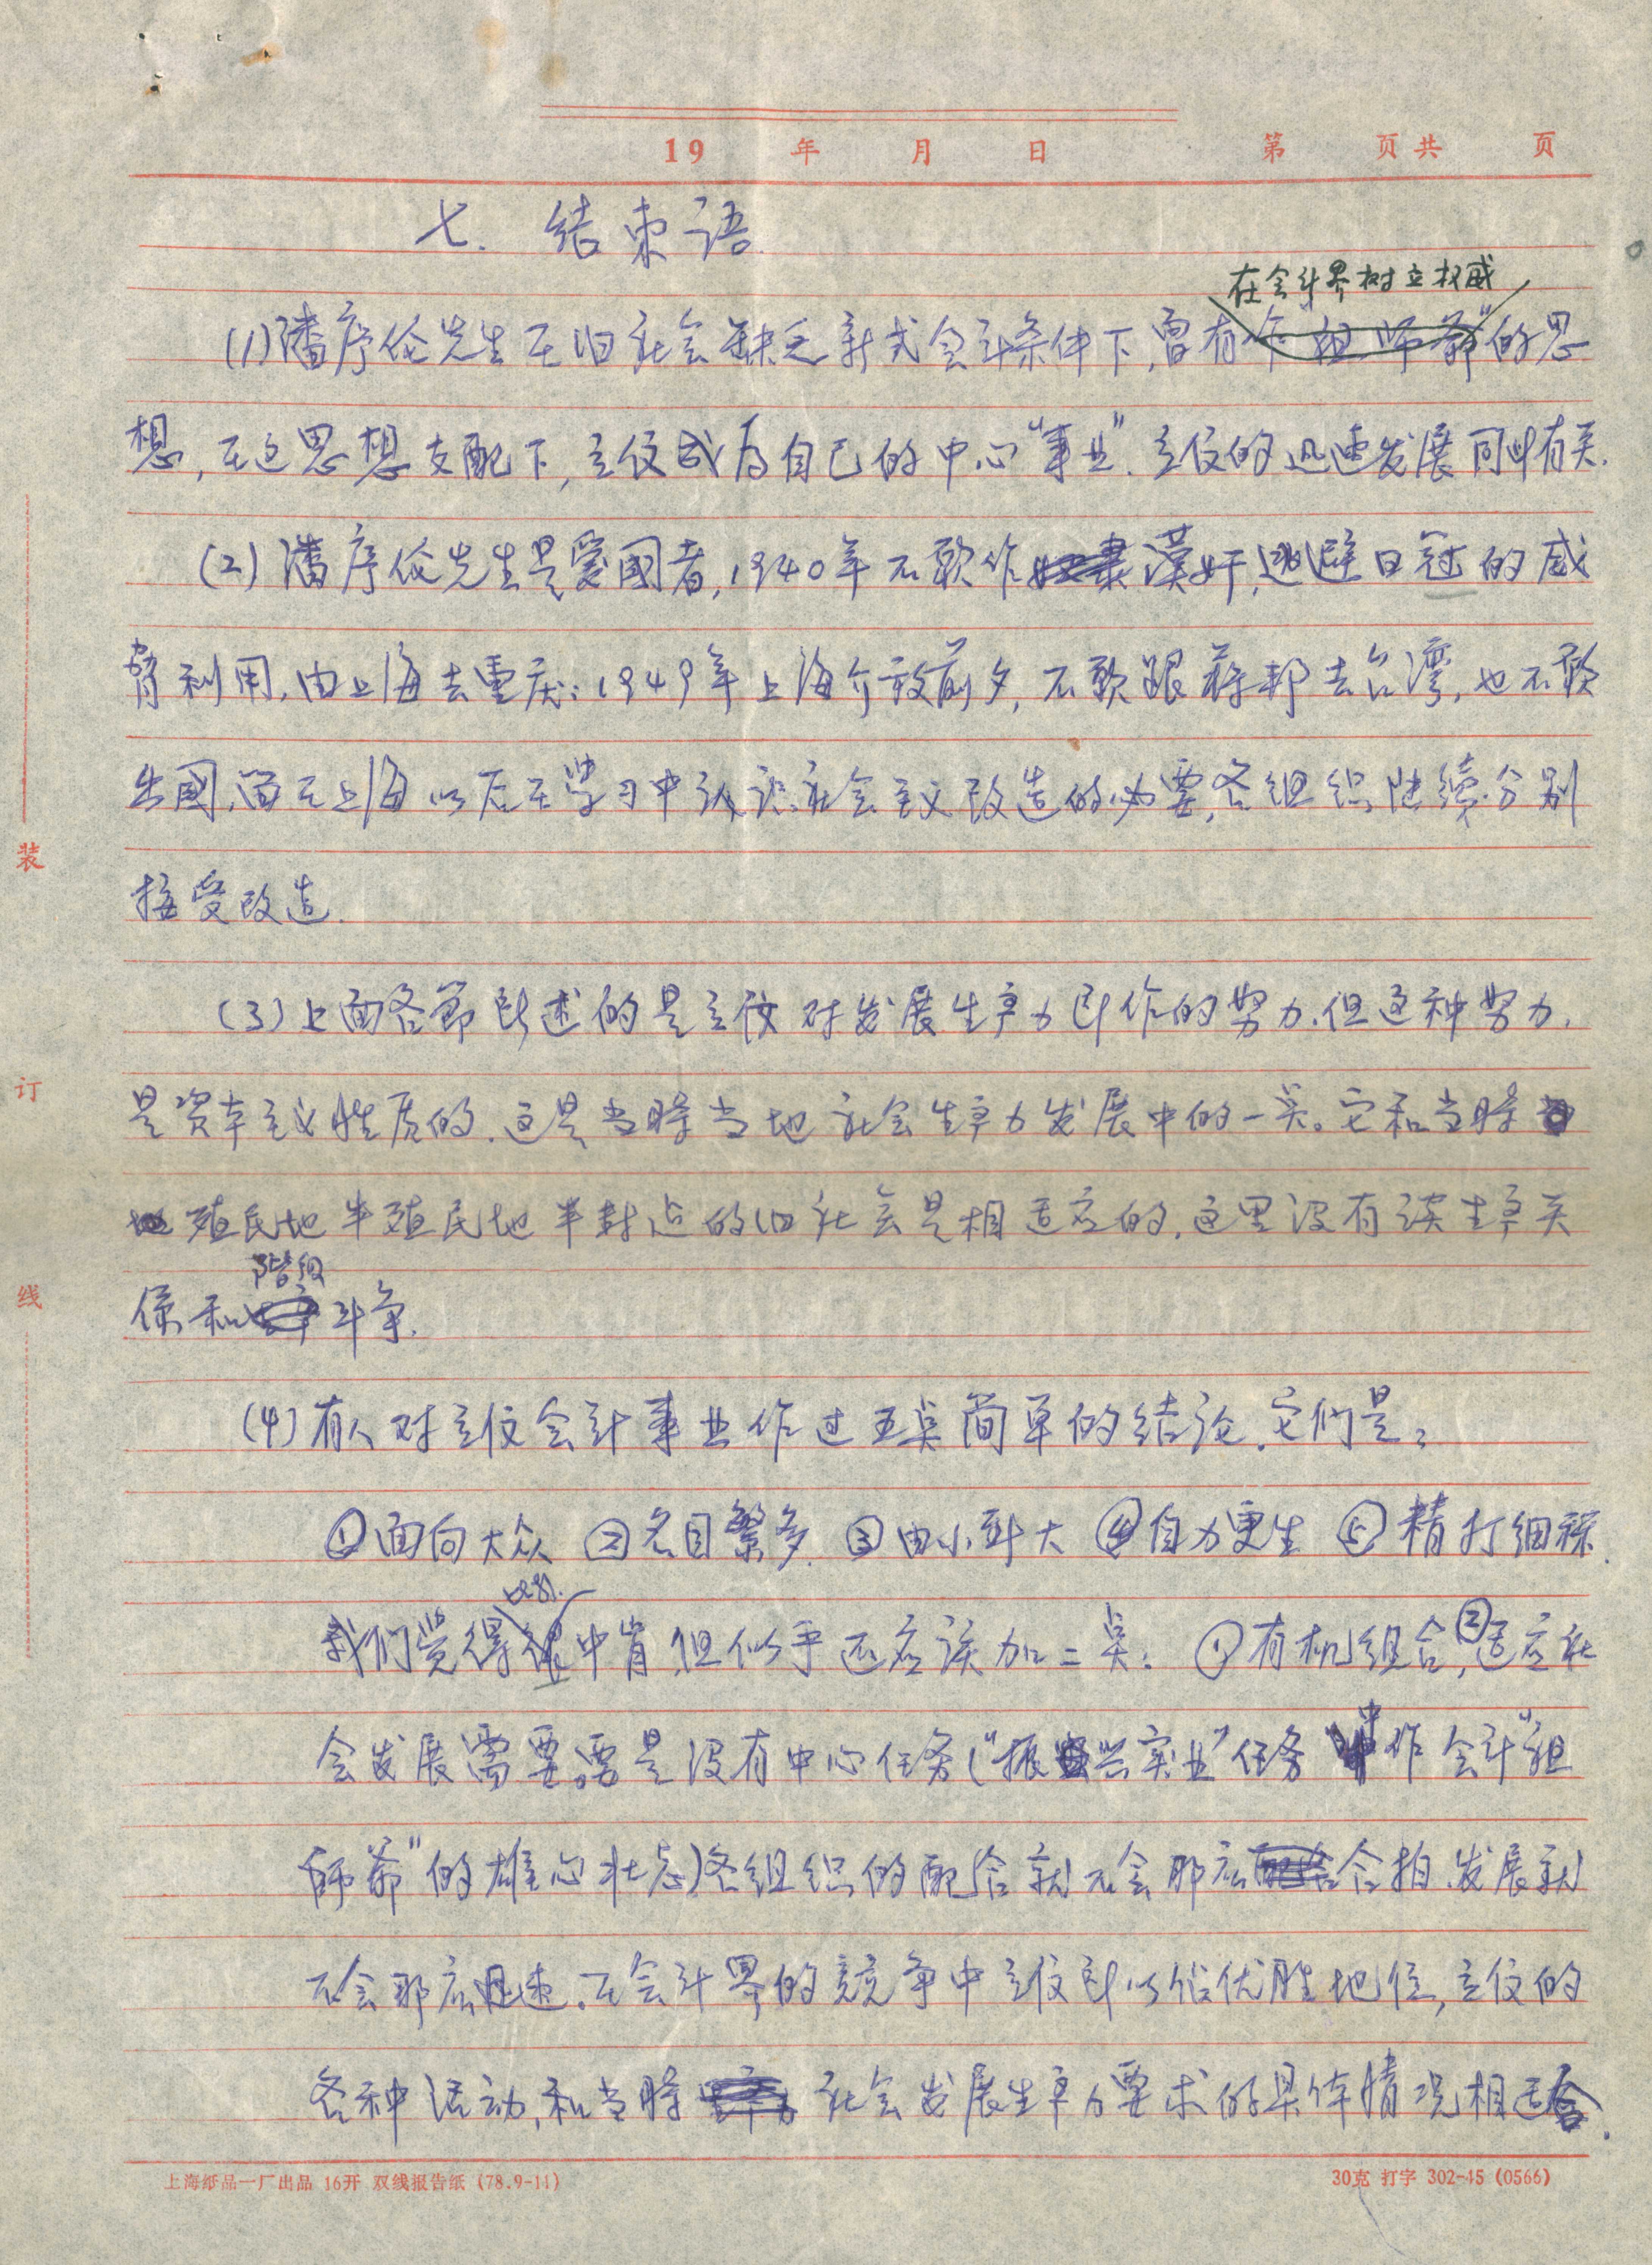 19 年 月 日 第 页共 页
七. 结束语
在会计界树立权威
(1)潘序伦先生在旧社会缺乏新式会计条件下,曾有作"祖师爷"的思
想,在这思想支配下,立信成为自己的中心"事业".立信的迅速发展同此有关.
(2)潘序伦先生是爱國者,1940年不愿作漢奸,逃避日冠的威
胁利用,由上海去重庆;1949年上海介放前夕,不愿跟蒋邦去台湾,也不愿
出國,留在上海以后在学习中认识社会主义改造的必要,各组织陆续分别
接受改造.
(3)上面各节所述的是立信对发展生产力所作的努力.但这种努力,
是资本主义性质的.这是当時当地社会生产力发展中的一点。它和当時
殖民地半殖民地半封建的旧社会是相适应的.这里没有谈生产关
阶级
係和斗争.
(4)有人对立信会计事业作过五点简单的结论.它们是:
①面向大众 ②名目繁多 ③由小到大 ④自力更生 ⑤精打细祘.
比较
我们觉得很中肯,但似乎还应该加二点:①有机组合,②适应社
会发展需要。要是没有中心任务("振兴实业"任务中作会计"祖
师爷"的雄心壮志)各组织的配合就不会那么合拍.发展就
不会那么迅速.在会计界的競争中立信所以佔优胜地位,立信的
各种活动,和当時社会发展生产力要求的具体情况相适合.
装
订
线
上海纸品一厂出品 16开 双线报告纸 (78.9-11)
30克 打字 302-45 (0566)